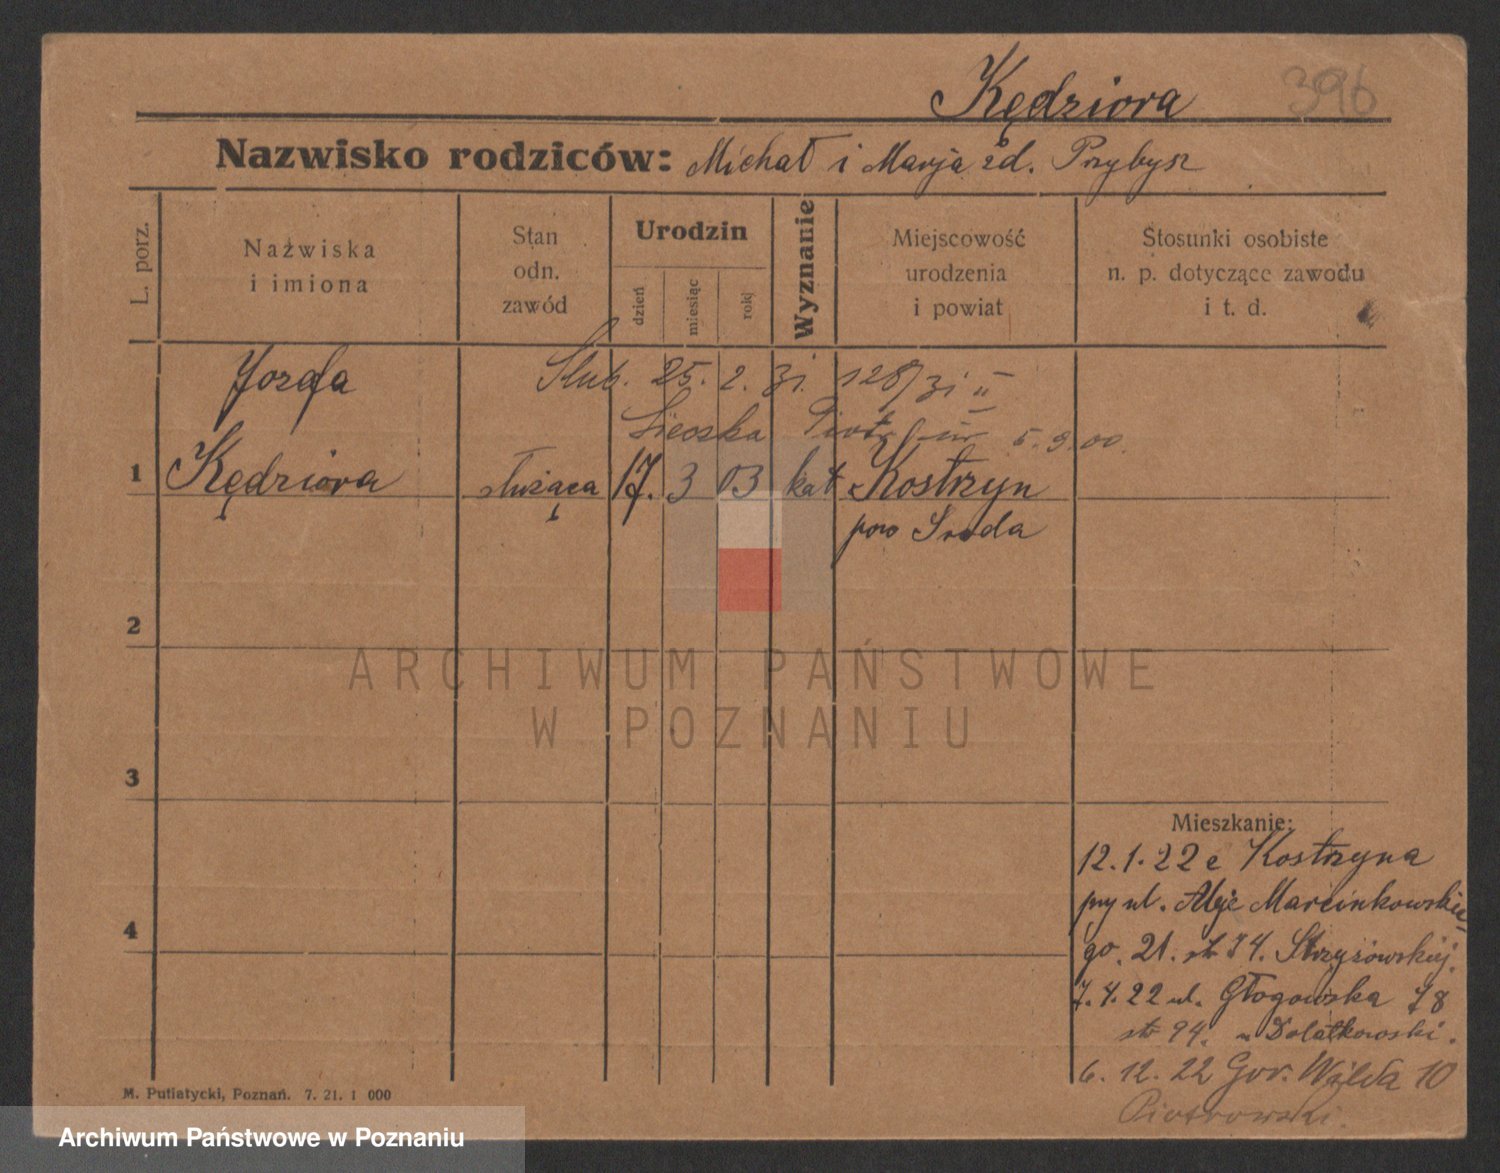 Kędziora 396
Nazwisko rodziców: Michał i Marja zd. Przybysz
L. porz.
Nazwiska
i imiona
Stan
odn.
zawód
Urodzin
dzień
miesiąc
rok
Wyznanie
Miejscowość
urodzenia
i powiat
Stosunki osobiste
n. p. dotyczące zawodu
i t. d.
Józefa
Ślub. 25. 2. 31. 128/31 II
Piotr 5.9.00.
1 Kędziora służąca 17. 3 03 kat Kostrzyn
pow Środa
2
ARCHIWUM PAŃSTWOWE
W POZNANIU
3
Mieszkanie:
12.1.22 z Kostrzyna
przy ul. Aleje Marcinkowskie-
4
go. 21. str 74. Strzyżowskiej.
7.4.22 ul. Głogowska 78
str 94. u Dolatkowski.
6. 12. 22 Gór. Wilda 10
Piotrowski.
M. Putiatycki, Poznań. 7. 21. 1 000
Archiwum Państwowe w Poznaniu